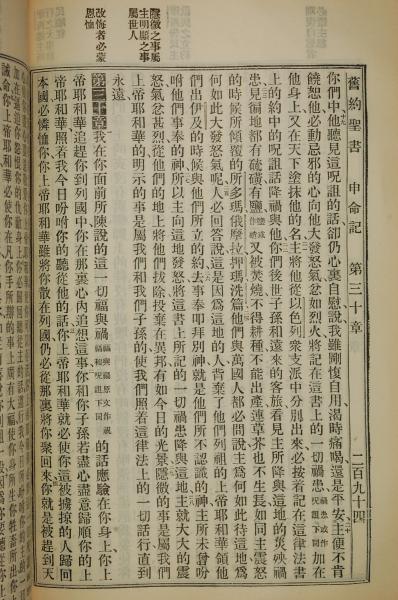 舊約聖書　申命記　第三十章　二百九十四
你們中他聽見這呪詛的話卻仍心裏自慰說我雖剛愎自用渴時痛喝還是平安主便不肯
饒恕他必動忌邪的心向他大發怒氣忿如烈火將記在這書上的一切禍患禍患或作呪詛下同加在
他身上又在天下塗抹他的名主將他從以色列衆支派中分別出來必按着記在這律法書
上的約中的呪詛話降禍與他你們後世子孫和遠來的客旅看見主所降與這地的災殃禍
患見徧地都有硫磺有鹽又被焚燒不得耕種不能出產連草芥也不生長如同主震怒
的時候所傾覆的所多瑪俄摩拉押瑪洗篇他們與萬國人都必問說主爲何如此待這地爲
何如此大發怒氣呢人必回答說這是因爲這地的人背棄了他們列祖的上帝耶和華領他
們出伊及的時候與他們所立的約去事奉叩拜別神就是他們所不認識的神主所未曾吩
咐他們事奉的神所以主向這地發怒將這書上所記的一切禍患降與這地主就大大的震
怒氣忿甚烈從他們的地上將他們拔除投棄在異邦有如今日的光景隱微的事是屬我們
上帝耶和華的明示的事是屬我們和我們子孫的使我們照着這律法上的一切話行直到
永遠
隱微之事屬
主明顯之事
屬世人
第三十章我在你面前所陳說的這一切福與禍福與禍原文作祝福與呪詛下同的話應驗在你身上你上
帝耶和華追趕你到列國中你在那裏心內追想這事你和子孫若盡心盡意歸順你的上
帝耶和華照着我今日吩咐你的聽從他的話你上帝耶和華就必使你這被擄掠的人歸回
本國必憐恤你你上帝耶和華雖將你散在列國仍必從那裏將你聚回來你就是被趕到天
改悔者必蒙
恩恤